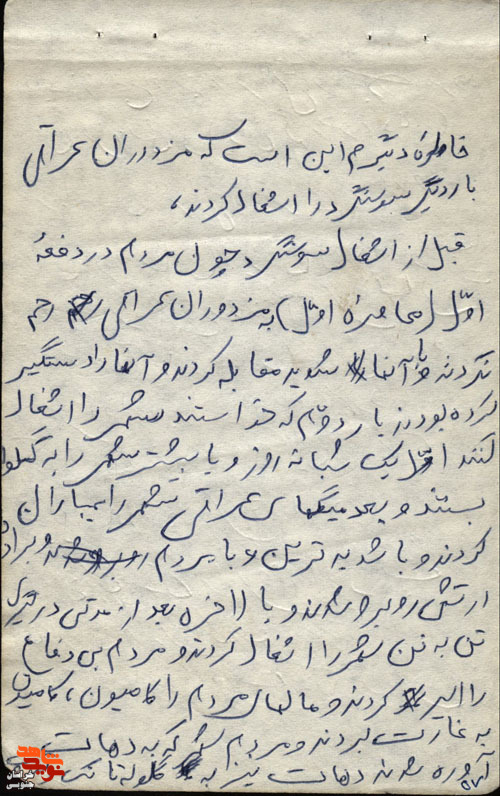 خاطرهٔ دیگرم این است که مزدوران عراقی
بار دیگر سوسنگرد را اشغال کردند،
قبل از اشغال سوسنگرد چون مردم در دفعهٔ
اوّل (محاصرهٔ اوّل) به مزدوران عراقی رحم
نکردند و با آنها شدید مقابله کردند و آنها را دستگیر
کرده بودند بار دوّم که خواستند شهر را اشغال
کنند اوّل یک شبانه روز و یا بیشتر شهر را به گلوله
بستند و بعد میگهای عراقی شهر را بمباران
کردند و با شدیدترین با مردم و برادر
ارتشی روبرو شدند و بالاخره بعد از مدتی درگیری
تن به تن شهر را اشغال کردند و مردم بی دفاع
را اسیر کردند و مالهای مردم را کامیون، کامیون
به غارت بردند و مردم شهر که به دهات
آواره شدند دهات نیز به گلوله تانک
شاهد
نوید
خراسان
جنوبی